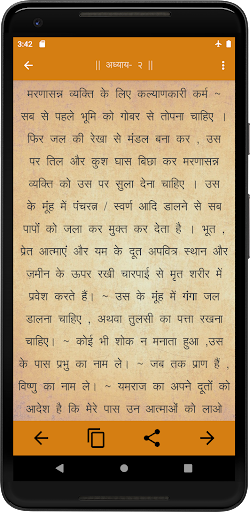 3:42
|| अध्याय- २ ||
मरणासन्न व्यक्ति के लिए कल्याणकारी कर्म ~
सब से पहले भूमि को गोबर से तोपना चाहिए ।
फिर जल की रेखा से मंडल बना कर , उस
पर तिल और कुश घास बिछा कर मरणासन्न
व्यक्ति को उस पर सुला देना चाहिए । उस
के मूंह में पंचरत्न / स्वर्ण आदि डालने से सब
पापों को जला कर मुक्त कर देता है । भूत ,
प्रेत आत्माएं और यम के दूत अपवित्र स्थान और
ज़मीन के ऊपर रखी चारपाई से मृत शरीर में
प्रवेश करते हैं। ~ उस के मूंह में गंगा जल
डालना चाहिए , अथवा तुलसी का पत्ता रखना
चाहिए। ~ कोई भी शोक न मनाता हुआ ,उस
के पास प्रभु का नाम ले। ~ जब तक प्राण हैं ,
विष्णु का नाम ले। ~ यमराज का अपने दूतों को
आदेश है कि मेरे पास उन आत्माओं को लाओ